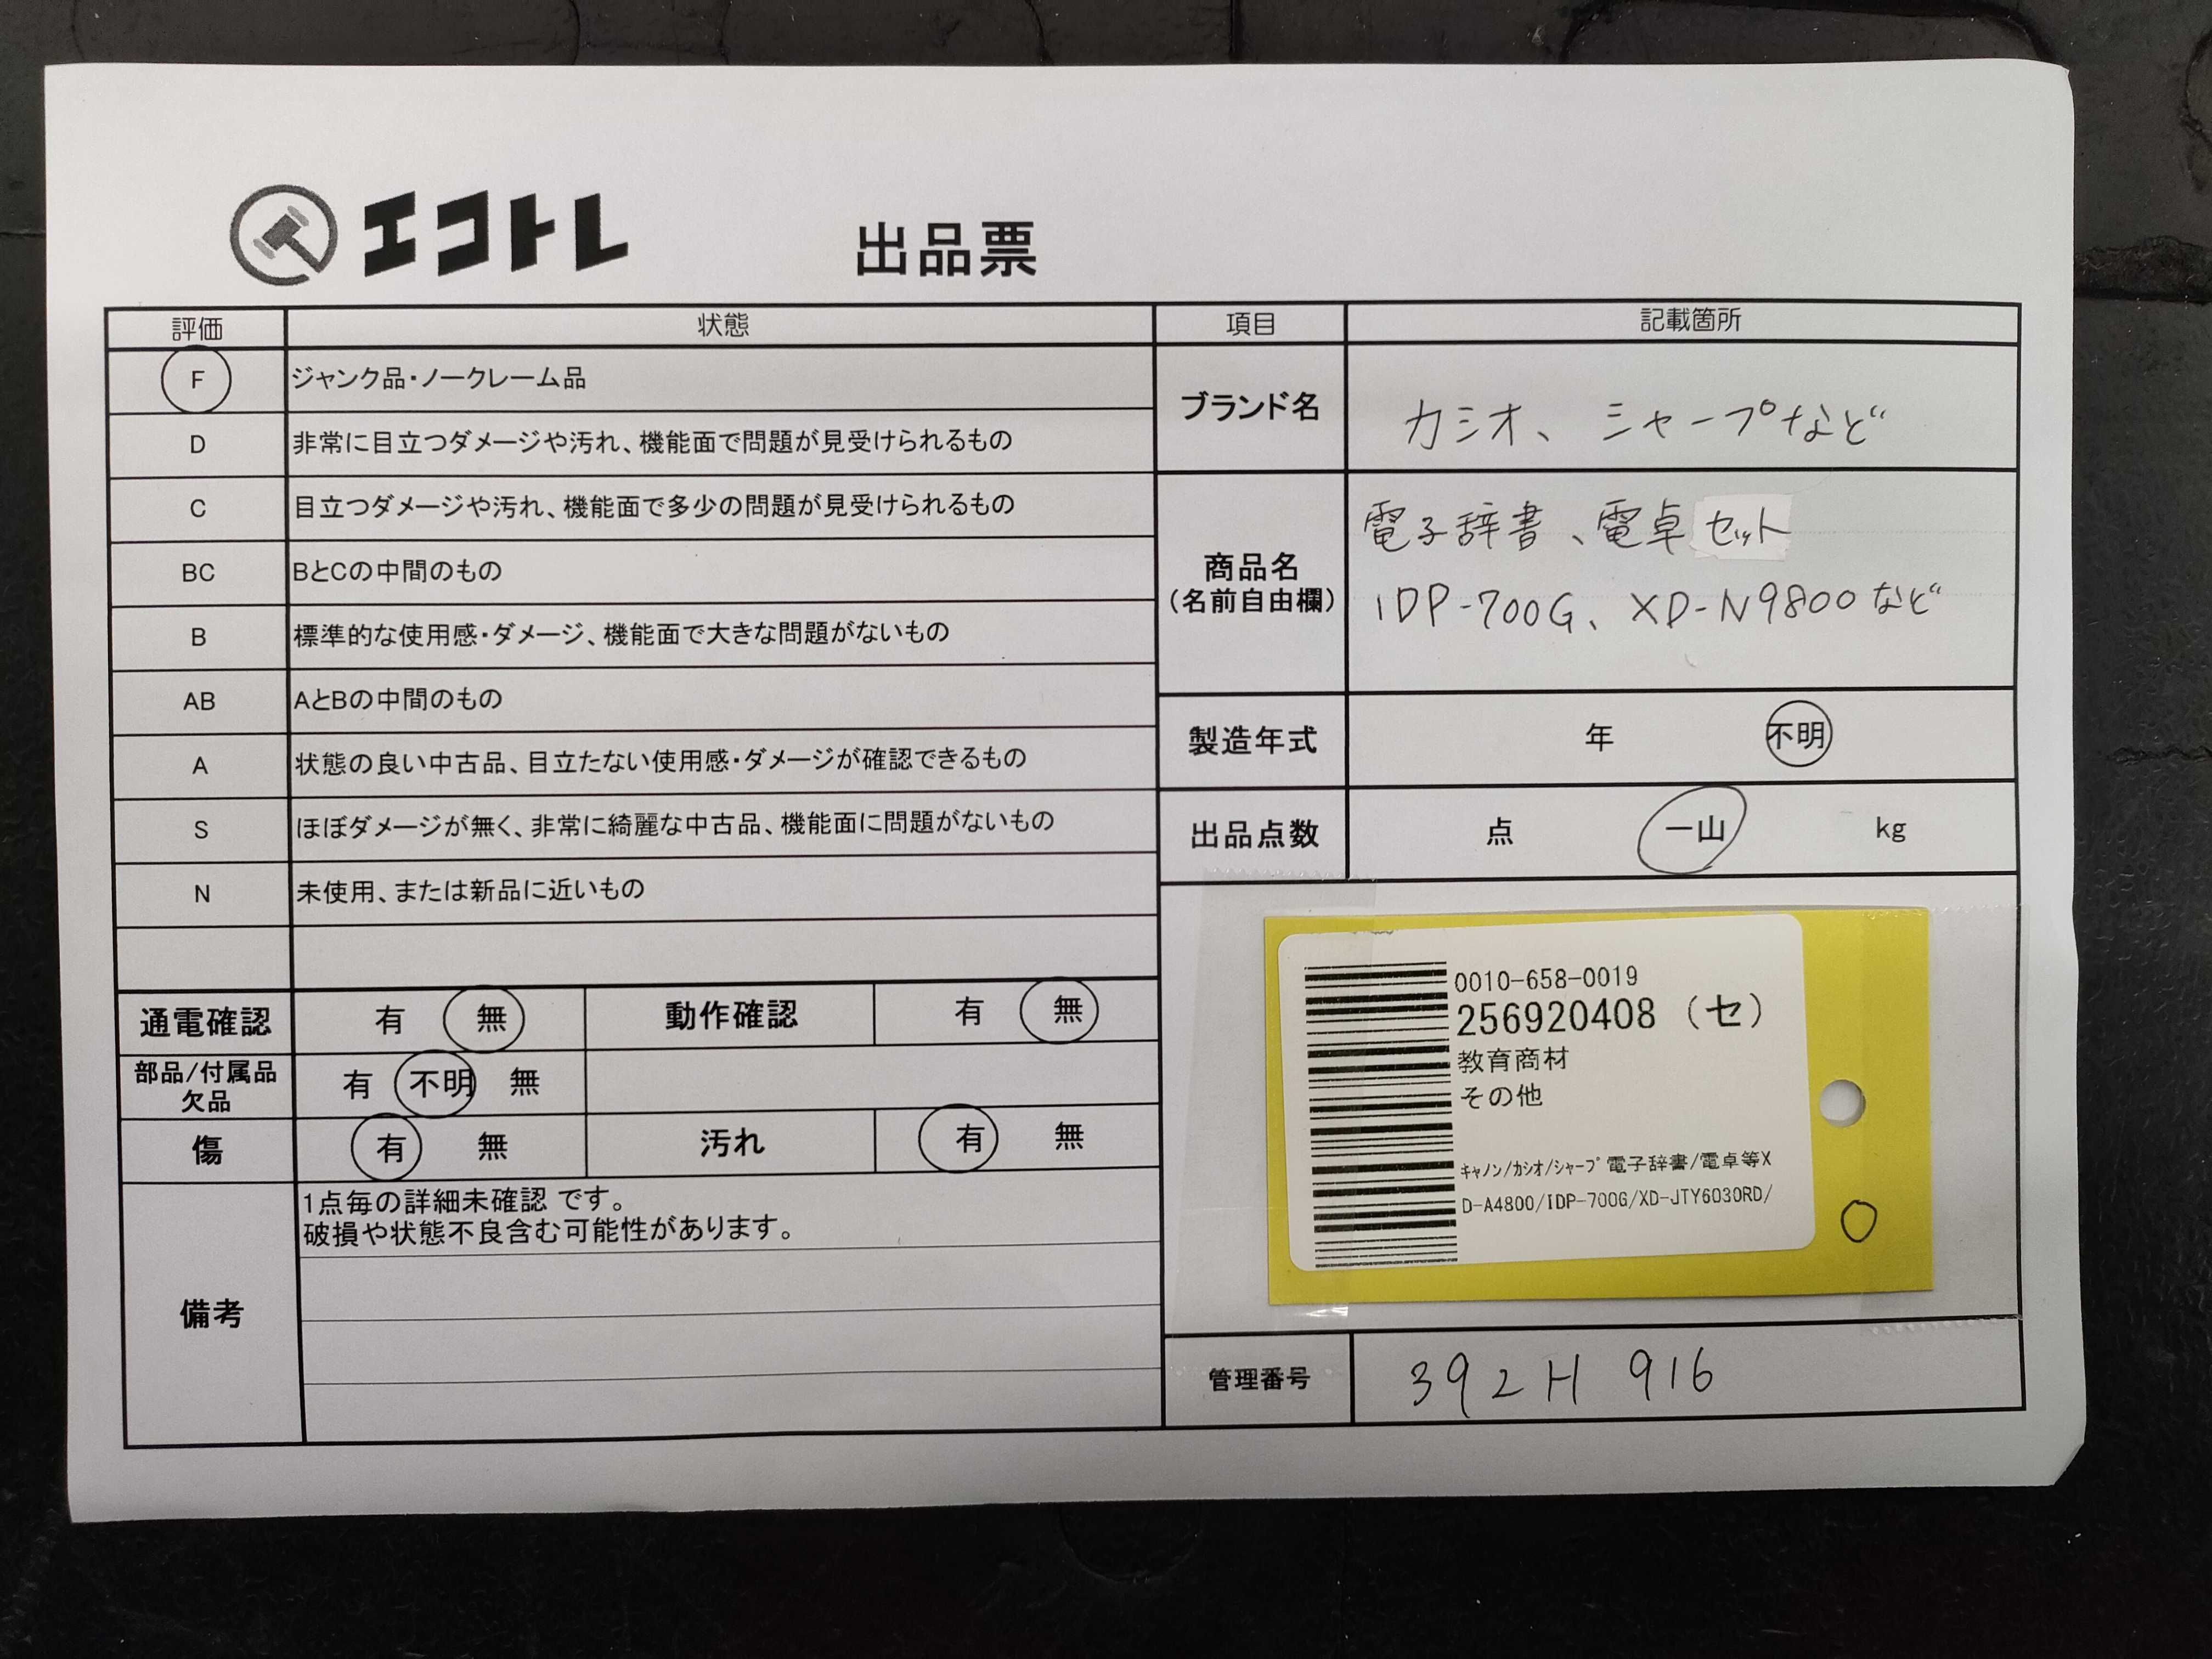 エコトレ
出品票
評価 状態
F ジャンク品・ノークレーム品
D 非常に目立つダメージや汚れ、機能面で問題が見受けられるもの
C 目立つダメージや汚れ、機能面で多少の問題が見受けられるもの
BC BとCの中間のもの
B 標準的な使用感・ダメージ、機能面で大きな問題がないもの
AB AとBの中間のもの
A 状態の良い中古品、目立たない使用感・ダメージが確認できるもの
S ほぼダメージが無く、非常に綺麗な中古品、機能面に問題がないもの
N 未使用、または新品に近いもの
通電確認 有 無 動作確認 有 無
部品/付属品
欠品 有 不明 無
傷 有 無 汚れ 有 無
備考
1点毎の詳細未確認 です。
破損や状態不良含む可能性があります。
項目 記載箇所
ブランド名 カシオ、シャープなど
商品名
(名前自由欄)
電子辞書、電卓セット
IDP-700G、XD-N9800など
製造年式 年 不明
出品点数 点 一山 kg
0010-658-0019
256920408 (セ)
教育商材
その他
ｷｬﾉﾝ/ｶｼｵ/ｼｬｰﾌﾟ 電子辞書/電卓等X
D-A4800/IDP-700G/XD-JTY6030RD/
管理番号 392H 916